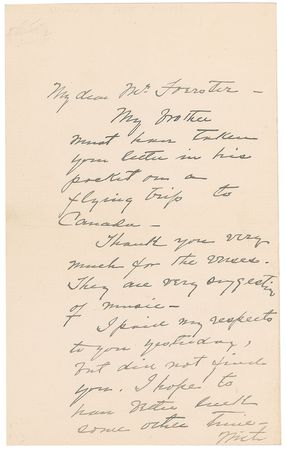 My dear Mr Foerster -
My brother
must have taken
your letter in his
pocket on a
flying trip to
Canada -
Thank you very
much for the verses.
They are very suggestive
of music -
I paid my respects
to you yesterday,
but did not find
you. I hope to
have better luck
some other time -
With